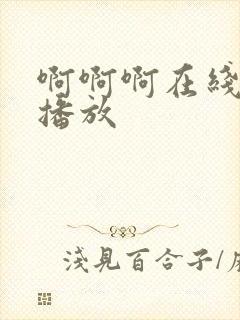 啊啊啊在綫
播放
淺見百合子/